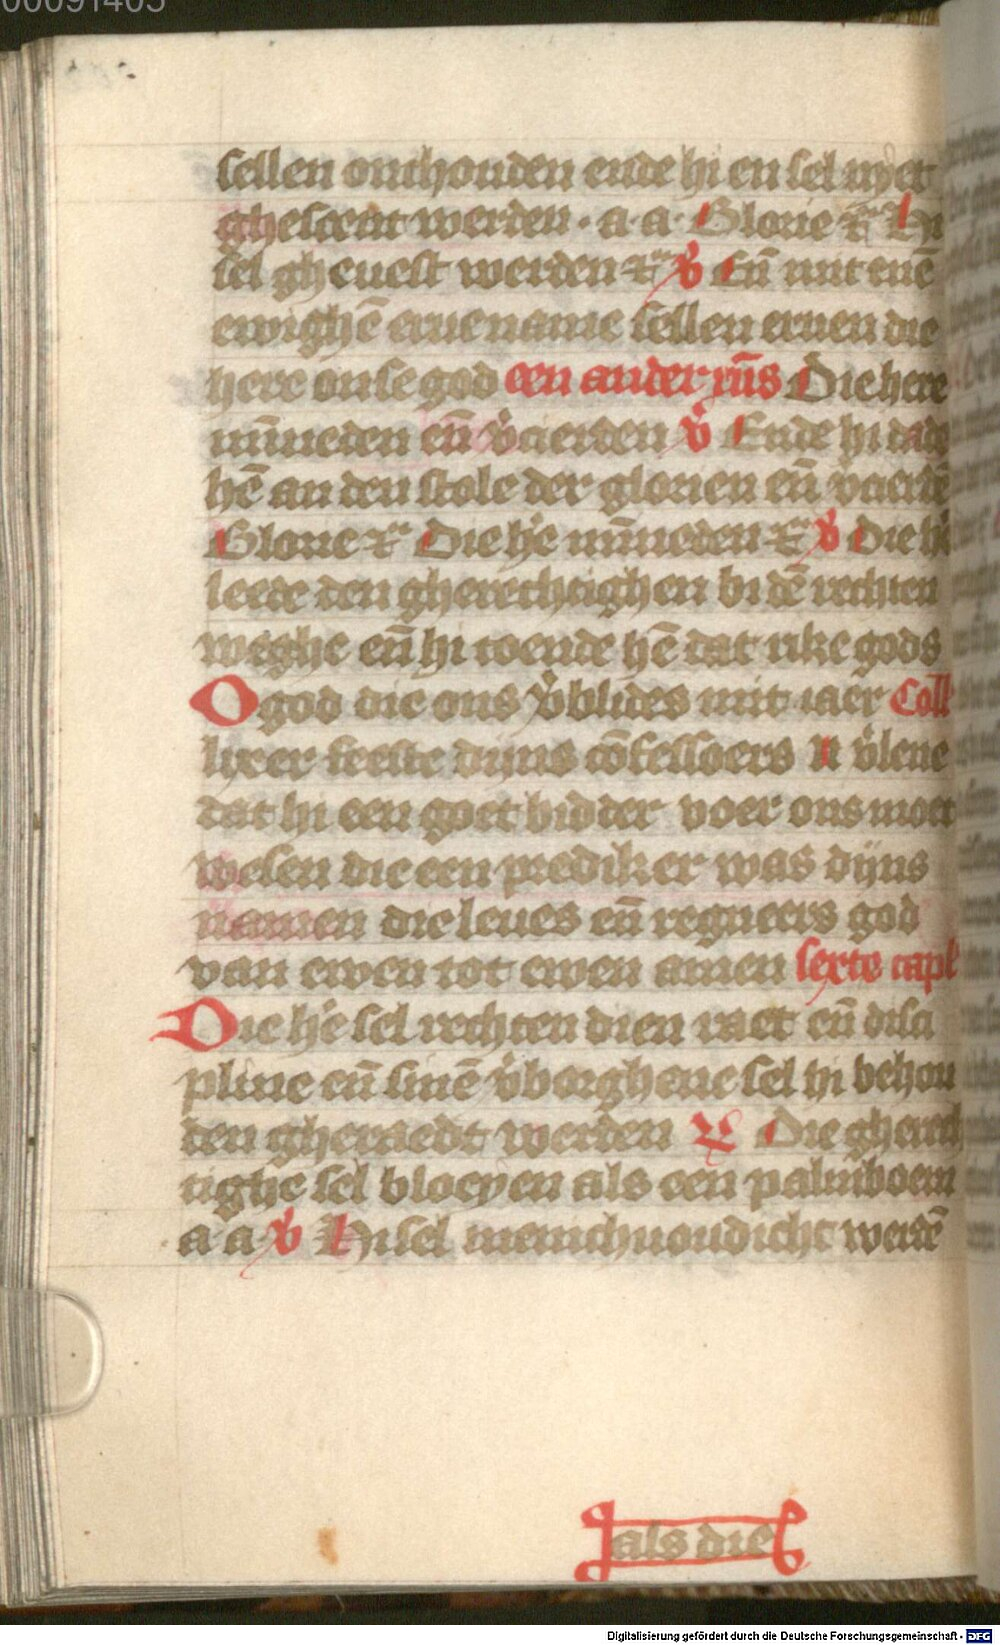 00091405
sellen onthouden ende hi en sel nyet
ghescent werden · a · a · Glorie ⁊c̄ Hi
sel gheuest werden ⁊c̄ v̇ En̄ mit enē
ewighē erue name sellen eruen die
here onse god een ander rn̄s Die here
mīneden en̄ v̇cierden v̇ Ende hi dade
hē an den stole der glorien en̄ v̇cierdē
Glorie ⁊c̄ Die h'e mīneden ⁊c̄ v̇ Die h'e
leede den gherechtighen bi dē rechten
weghe en̄ hi toende hē dat rike gods
O god die ons v̇blides mit iaer Coll
lixer feeste dijns cōfessoers N v̇lene
dat hi een goet bidder voer ons moet
wesen die een prediker was dijns
namen die leues en̄ regneers god
van ewen tot ewen amen sexte capl
Die h'e sel rechten dien raet en̄ disci
pline en̄ sinē v̇borghene sel hi behou
den gheraedt werden ꝶ Die gherech
tighe sel bloeyen als een palmboem
a a v̇ Hi sel menichuoudicht werdē
als die
Digitalisierung gefördert durch die Deutsche Forschungsgemeinschaft - DFG